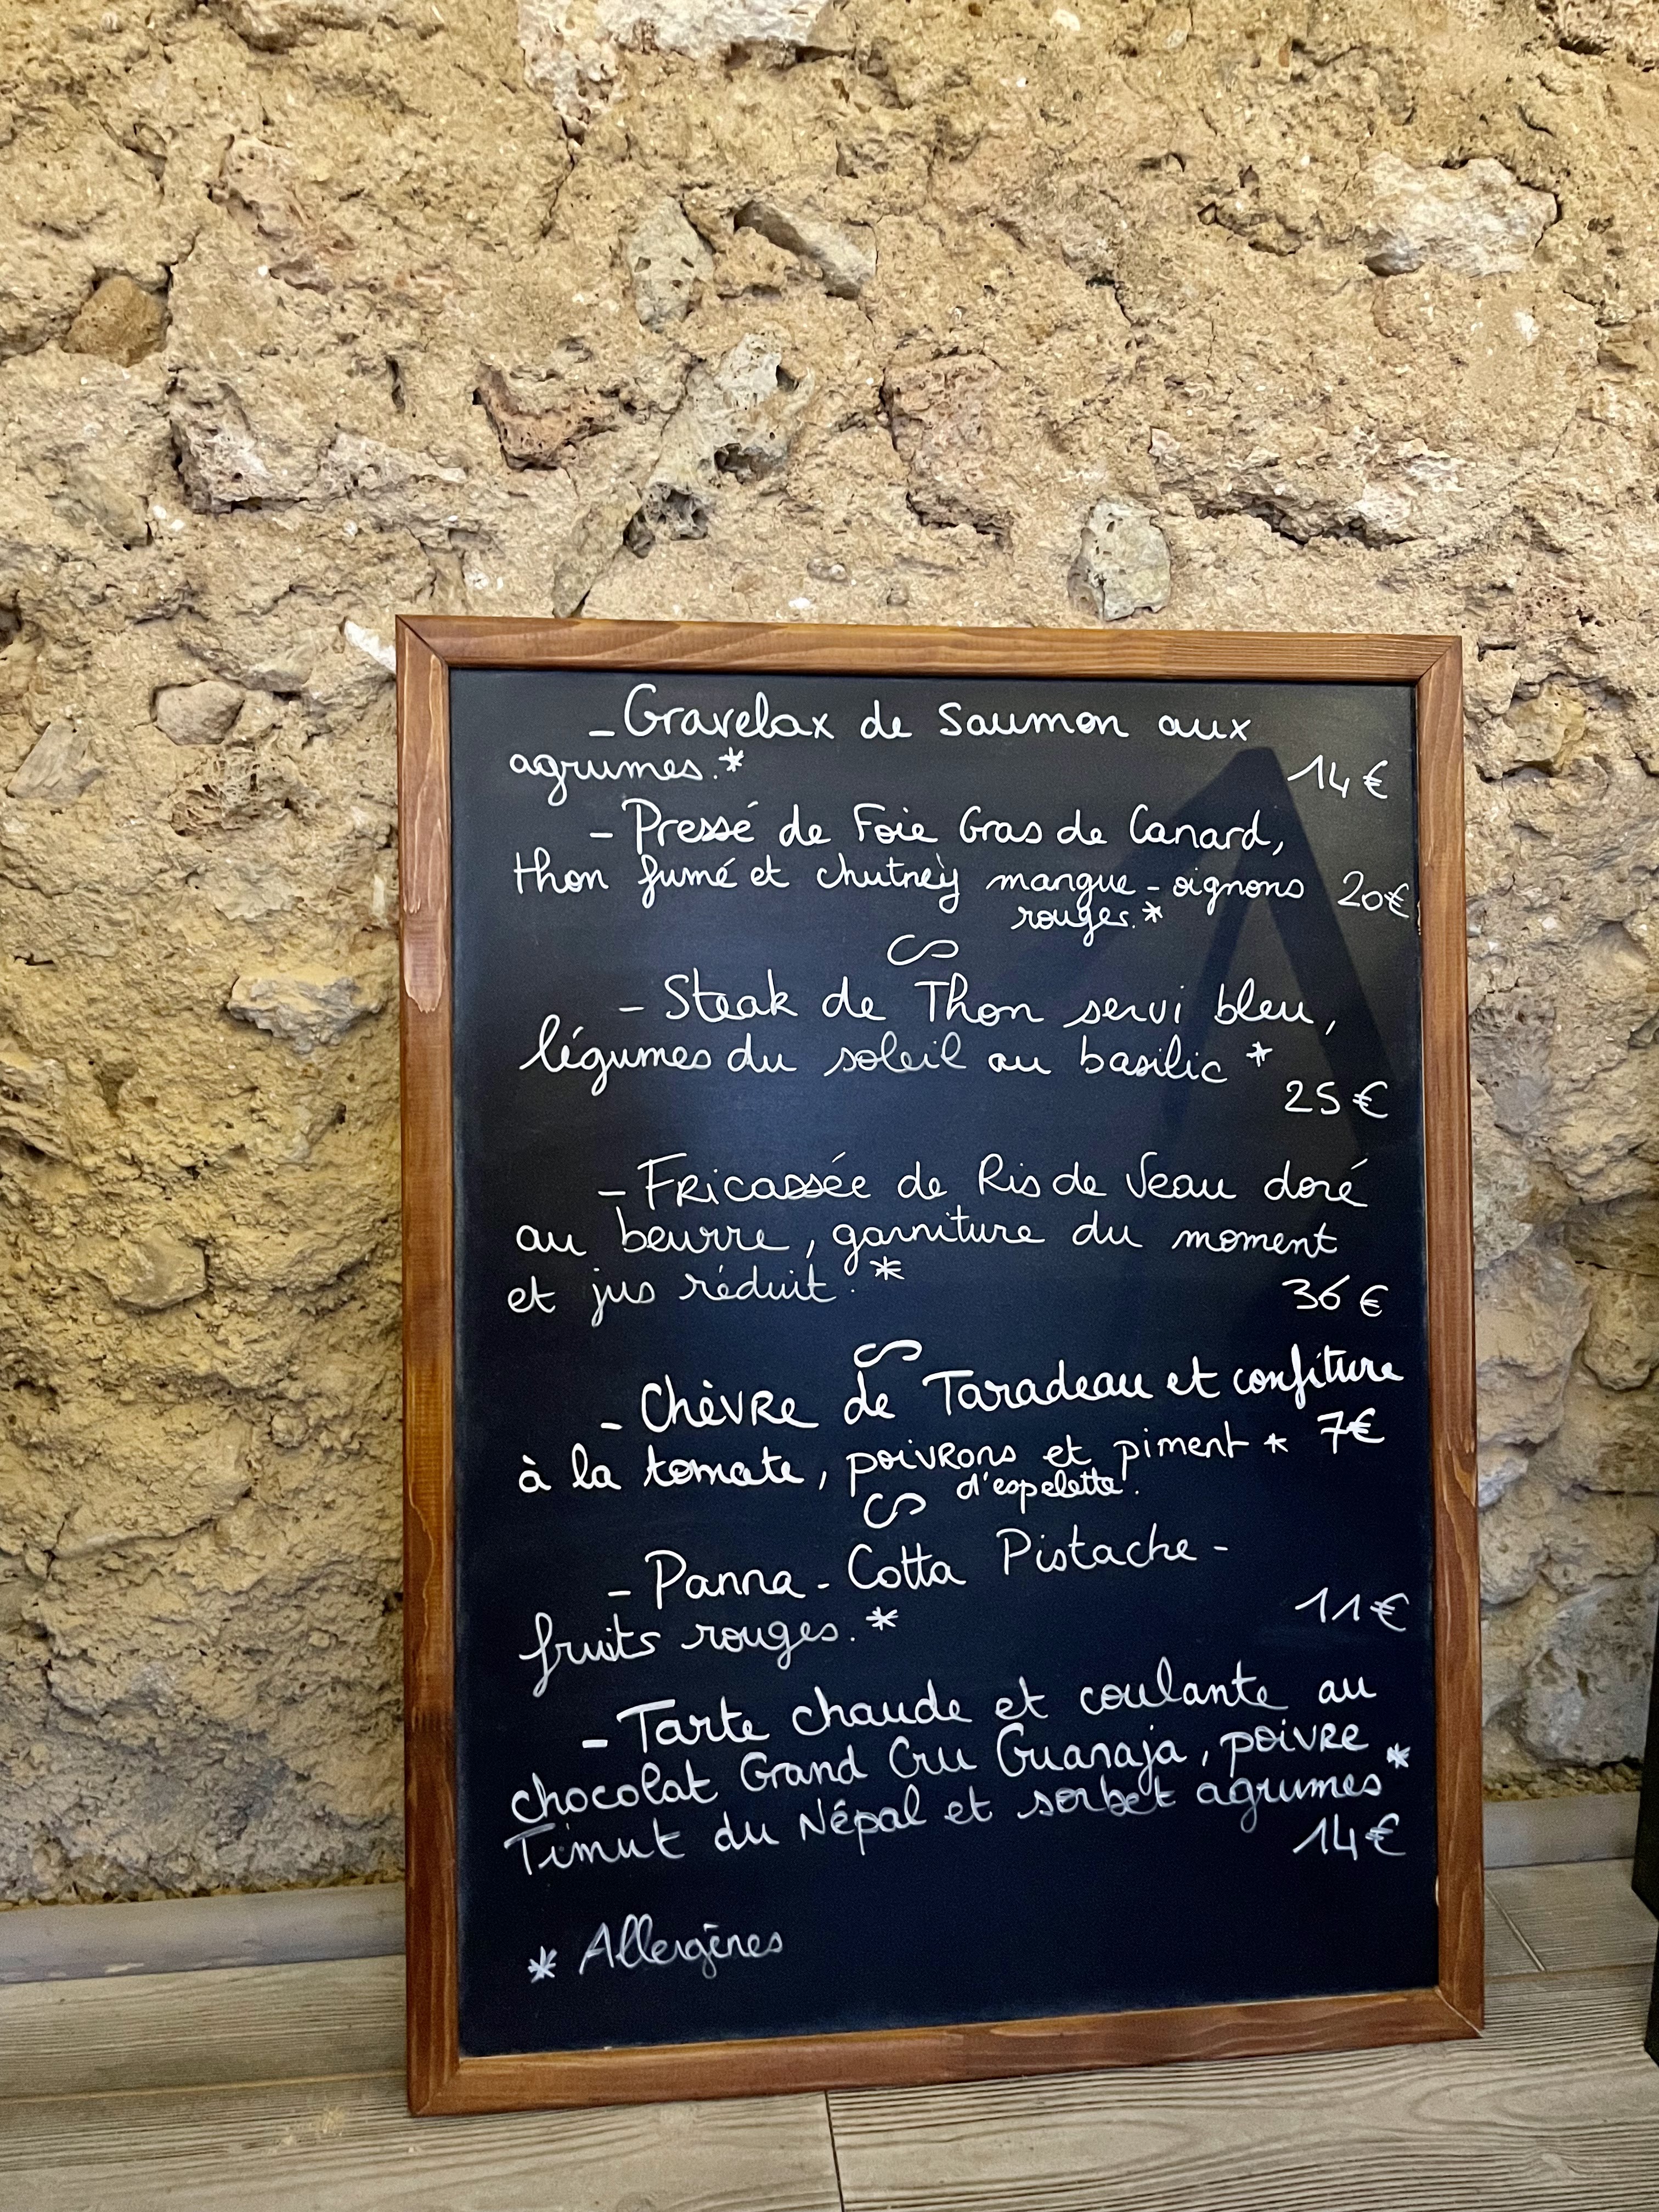 - Gravelax de Saumon aux
agrumes.* 14€
- Pressé de Foie Gras de Canard,
thon fumé et chutney mangue - oignons 20€
rouges.*
- Steak de Thon servi bleu,
légumes du soleil au basilic *
25€
- Fricassée de Ris de Veau doré
au beurre, garniture du moment
et jus réduit. * 36€
- Chèvre de Taradeau et confiture
à la tomate, poivrons et piment * 7€
d'espelette.
- Panna - Cotta Pistache -
fruits rouges. * 11€
- Tarte chaude et coulante au
chocolat Grand Cru Guanaja, poivre
Timut du Népal et sorbet agrumes *
14€
* Allergènes